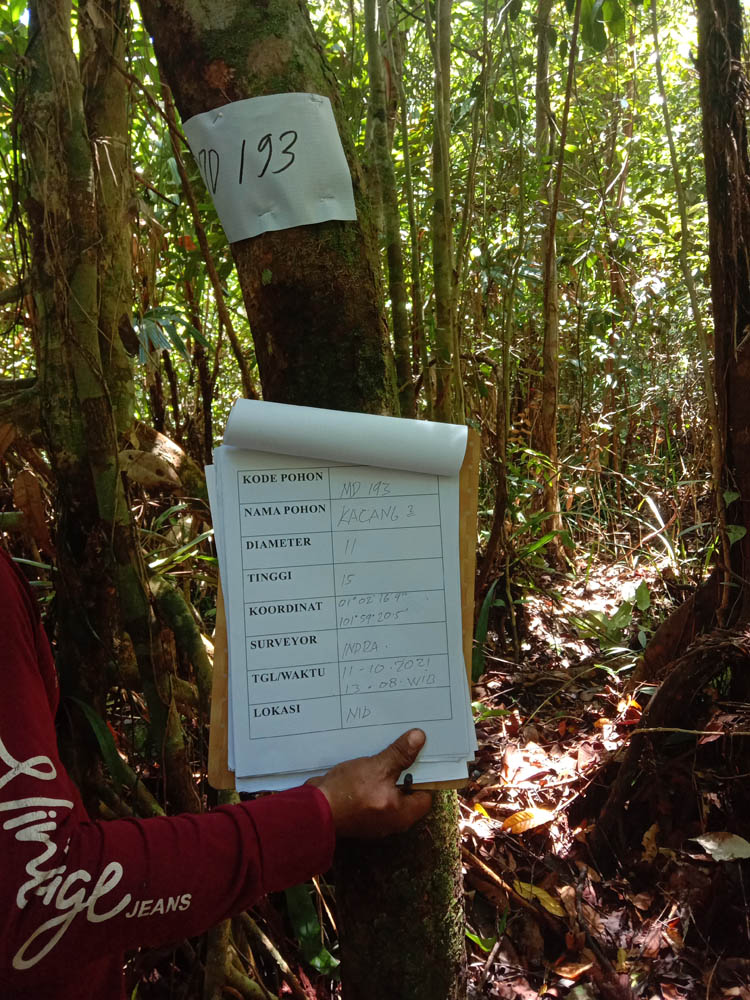 MD 193
KODE POHON MD 193
NAMA POHON KACANG 2
DIAMETER 11
TINGGI 15
KOORDINAT 01°02'16.9"
101°59'20.5"
SURVEYOR INDRA.
TGL/WAKTU 11-10-2021
13.08.WIB
LOKASI
JEANS